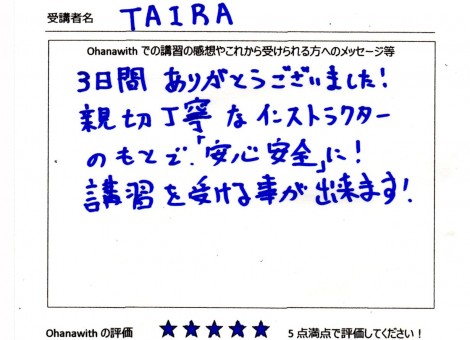 受講者名 TAIRA
Ohanawith での講習の感想やこれから受けられる方へのメッセージ等
3日間 ありがとうございました!
親切丁寧なインストラクター
のもとで、「安心安全」に!
講習を受ける事が出来ます!
Ohanawith の評価 ★★★★★ 5 点満点で評価してください!